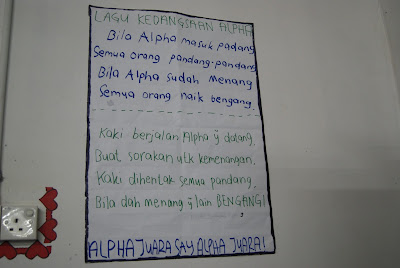 LAGU KEDANGSAAN ALPHA
Bila Alpha masuk padang
Semua orang pandang-pandang
Bila Alpha sudah Menang
Semua orang naik bengang.
Kaki berjalan Alpha yg datang,
Buat sorakan utk kemenangan,
Kaki dihentak semua pandang,
Bila dah menang yg lain BENGANG!
ALPHA JUARA SAY ALPHA JUARA!